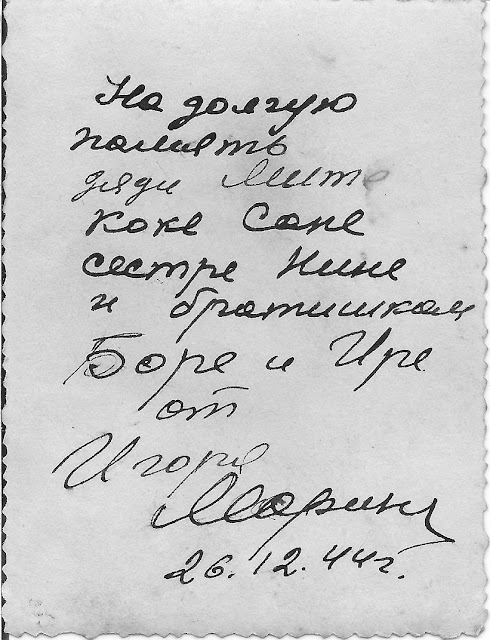 На долгую
память
дяди Мите
Коке Сане
сестре Нине
и братишкам
Боре и Ире
от
Игоря
Марин
26.12.44г.